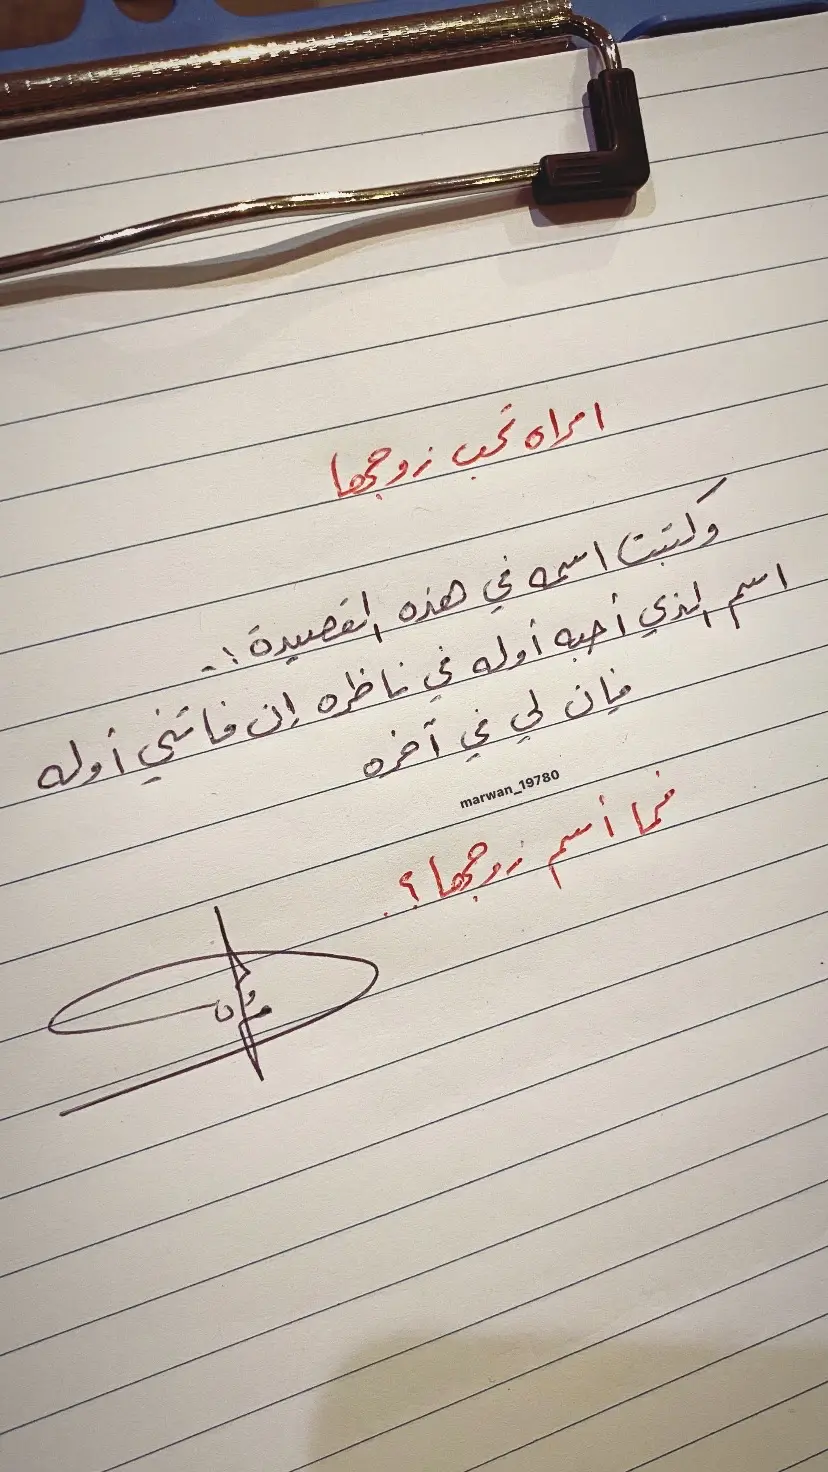 امراه تحب زوجها
وكتبت اسمه في هذه القصيدة :-
اسم الذي أحبه أوله في ناظره إن فاتني أوله
فإن لي في آخره
marwan_19780
فما أسم زوجها ؟.
مروان